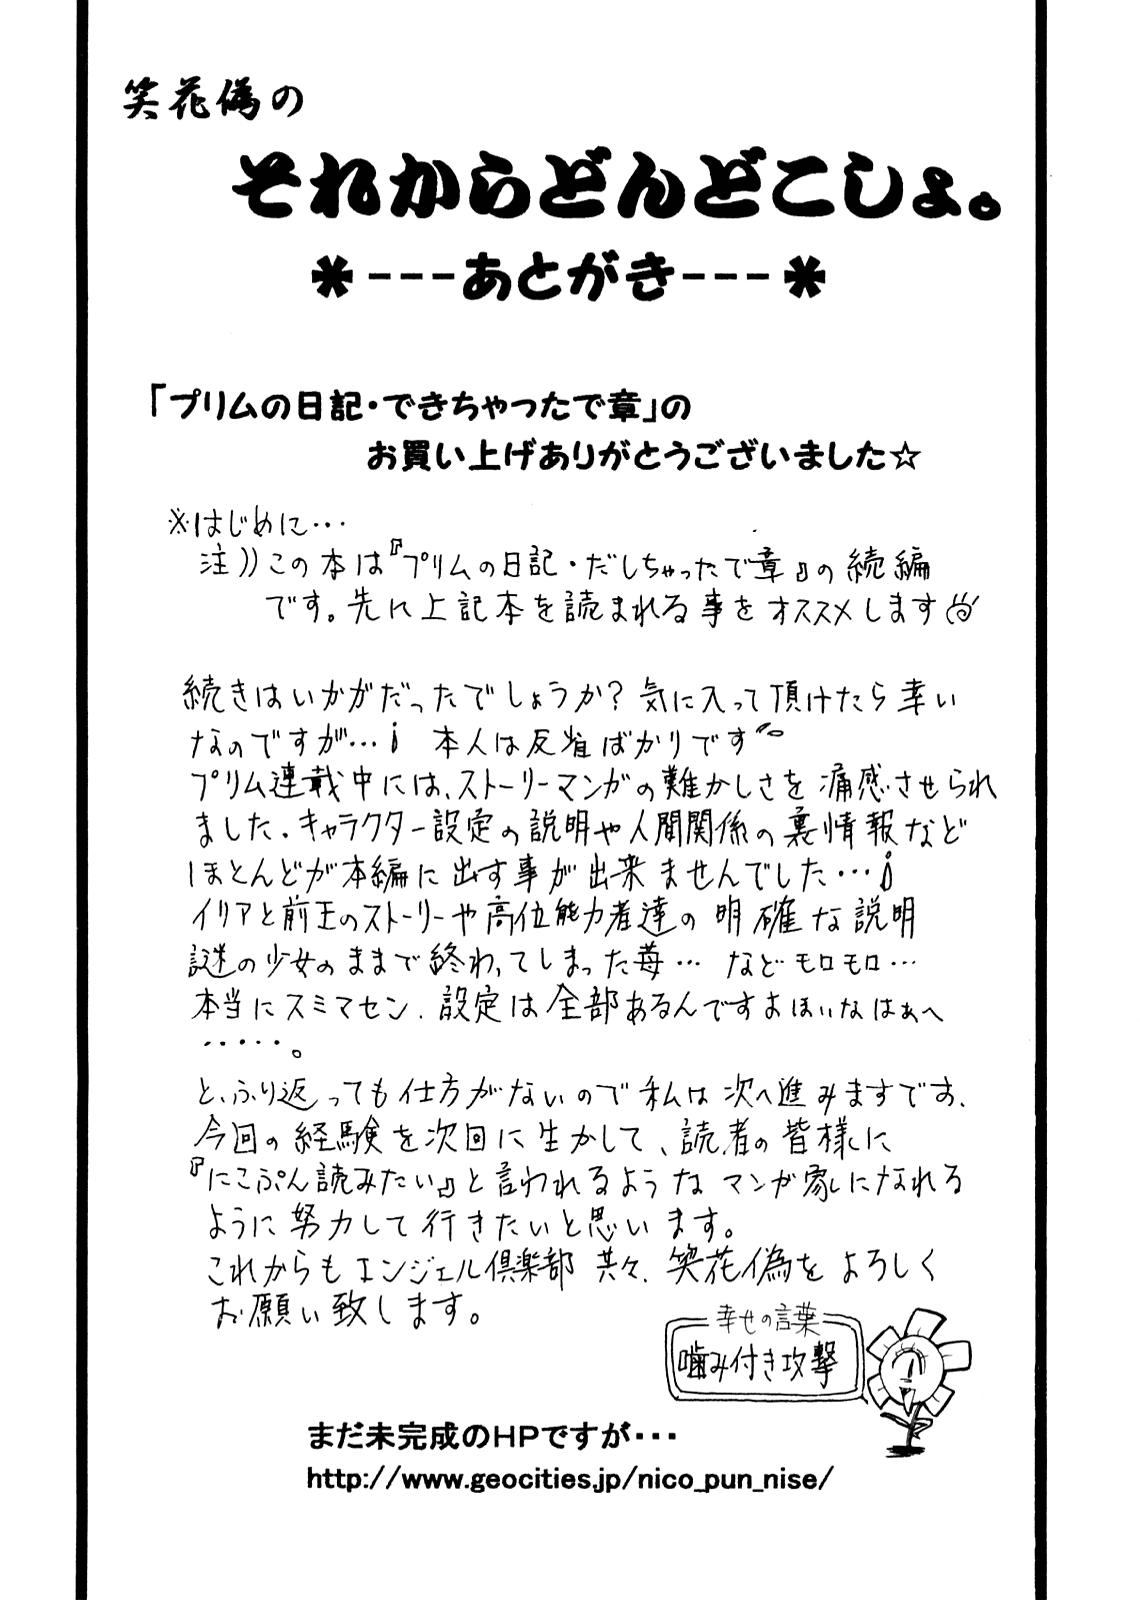 笑花偽の
それからどんどこしょ。
*---あとがき---*
「プリムの日記・できちゃったで章」の
お買い上げありがとうございました☆
※はじめに…
注))この本は『プリムの日記・だしちゃったで章』の続編
です。先に上記本を読まれる事をオススメします
続きはいかがだったでしょうか？気に入って頂けたら幸い
なのですが…¡ 本人は反省ばかりです
プリム連載中には、ストーリーマンガの難かしさを痛感させられ
ました。キャラクター設定の説明や人間関係の裏情報など
ほとんどが本編に出す事が出来ませんでした…¡
イリアと前王のストーリーや高位能力者達の明確な説明
謎の少女のままで終わってしまった苺… などモロモロ…
本当にスミマセン、設定は全部あるんですよほいなはぁへ
・・・・・。
と、ふり返っても仕方がないので私は次へ進みますです、
今回の経験を次回に生かして、読者の皆様に
『にこぷん読みたい』と言われるようなマンガ家になれる
ように努力して行きたいと思います。
これからもエンジェル倶楽部 共々、笑花偽をよろしく
お願い致します。
幸せの言葉
噛み付き攻撃
まだ未完成のHPですが・・・
http://www.geocities.jp/nico_pun_nise/